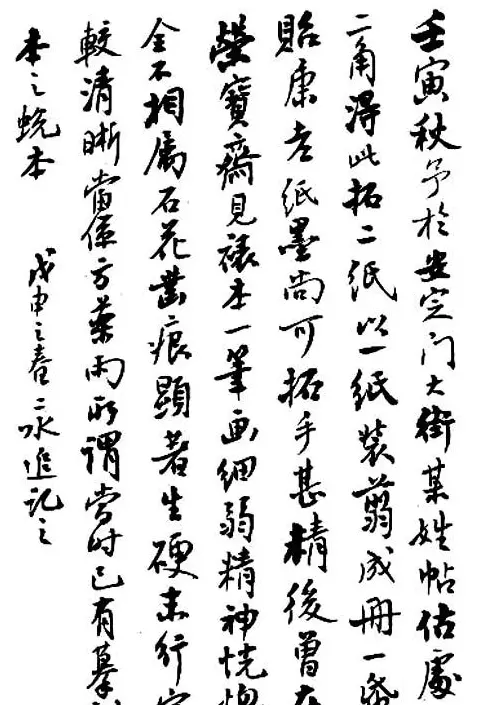 壬寅秋予於安定门大街某姓帖估處
二角得此拓二纸以一纸装翦成冊一纸
贻康老纸墨尚可拓手甚精後曾在
榮寶齋見裱本一筆画细弱精神恍惚
全不相属石花凿痕顯著生硬末行字
較清晰當係方藥雨所谓當时已有摹刻
本之蜕本
戊申之春二泳追記之